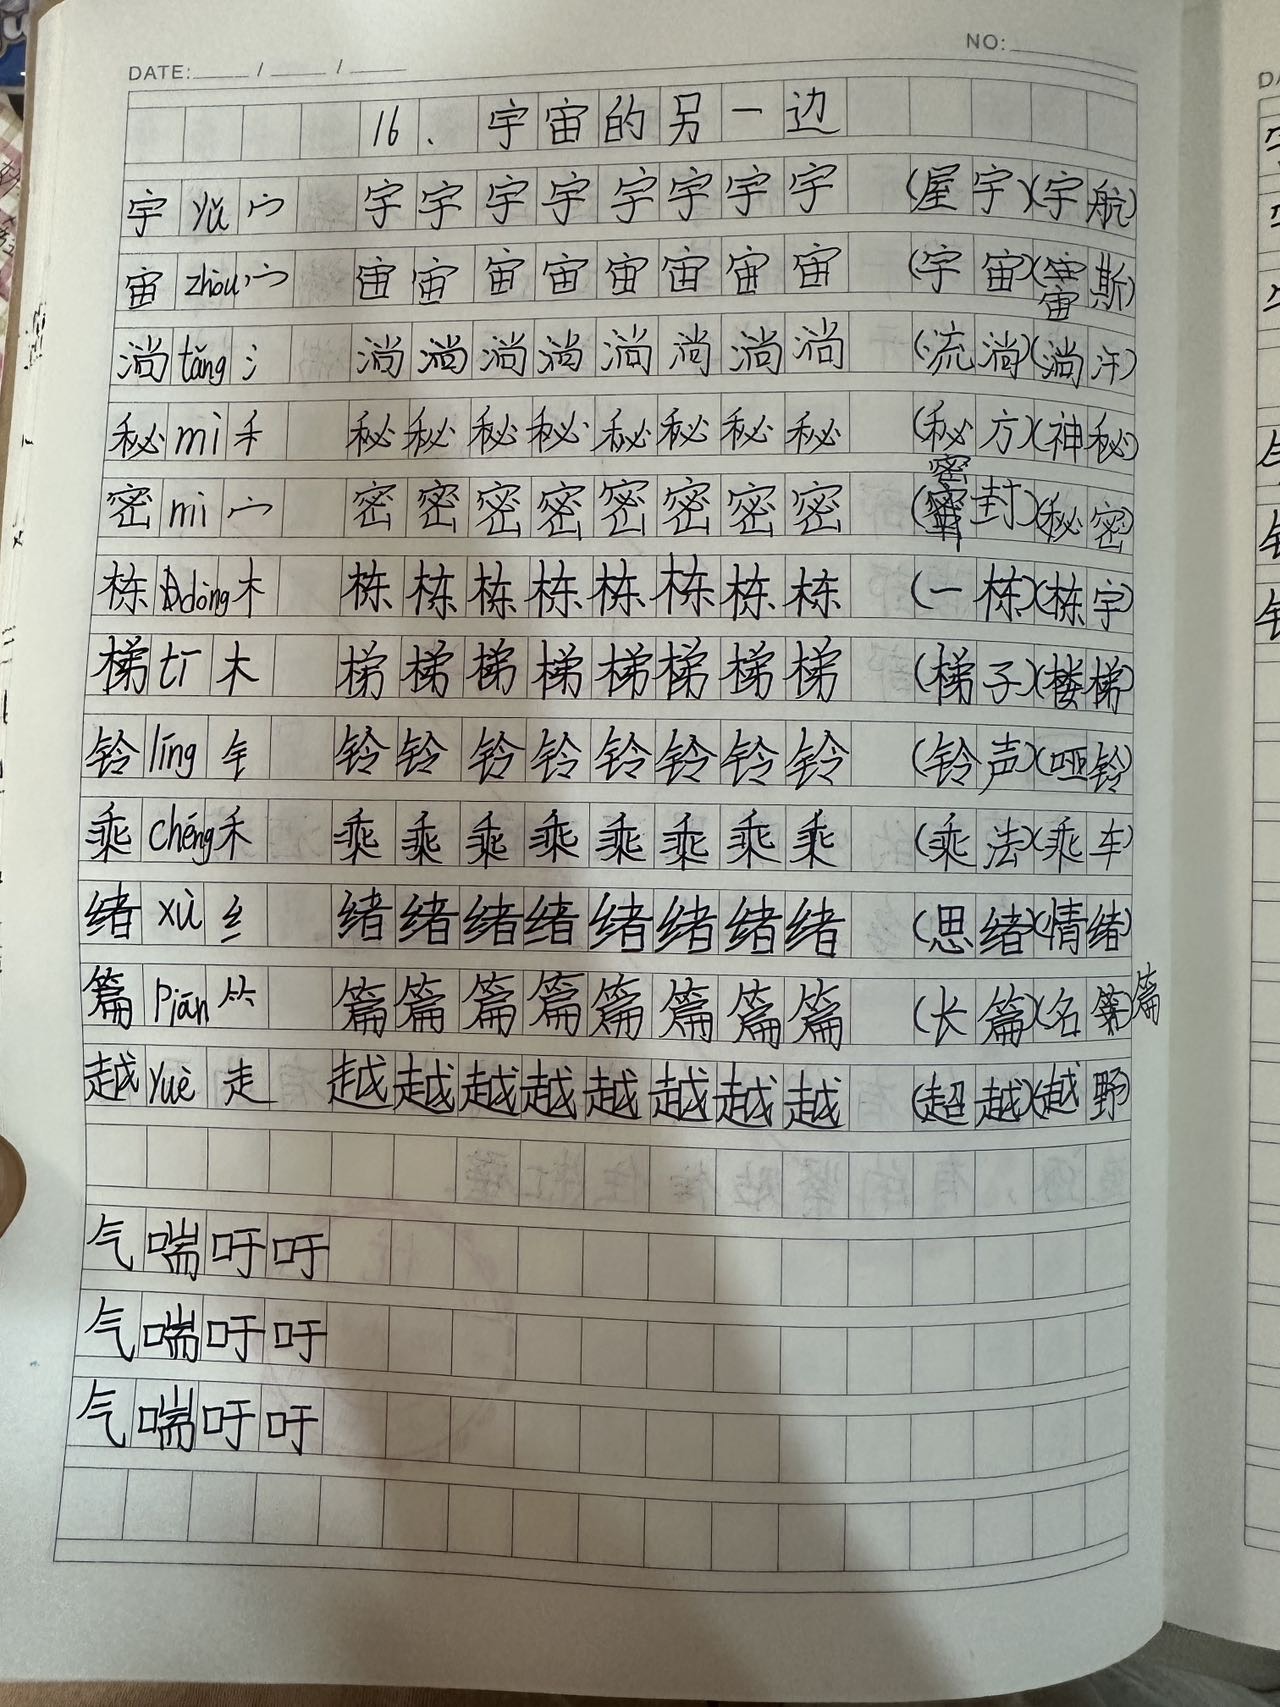 DATE: / /
NO:
16. 宇宙的另一边
宇 yǔ 宀 宇宇宇宇宇宇宇宇 (屋宇)(宇航)
宙 zhòu 宀 宙宙宙宙宙宙宙宙 (宇宙)(宙斯)
淌 tǎng 氵 淌淌淌淌淌淌淌淌 (流淌)(淌汗)
秘 mì 禾 秘秘秘秘秘秘秘秘 (秘方)(神秘)
密 mì 宀 密密密密密密密密 (密封)(秘密)
栋 dòng 木 栋栋栋栋栋栋栋栋 (一栋)(栋宇)
梯 tī 木 梯梯梯梯梯梯梯梯 (梯子)(楼梯)
铃 líng 钅 铃铃铃铃铃铃铃铃 (铃声)(哑铃)
乘 chéng 禾 乘乘乘乘乘乘乘乘 (乘法)(乘车)
绪 xù 纟 绪绪绪绪绪绪绪绪 (思绪)(情绪)
篇 piān 𥫗 篇篇篇篇篇篇篇篇 (长篇)(名篇)
越 yuè 走 越越越越越越越越 (超越)(越野)
气喘吁吁
气喘吁吁
气喘吁吁